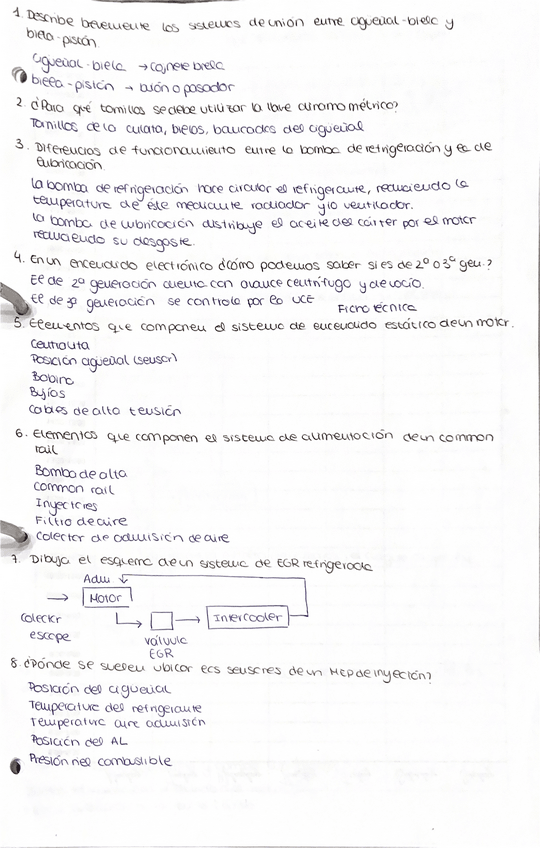 1. Describe brevemente los sistemas de union entre cigueñal-biela y
biela-pistón.
cigueñal-biela → cojinete biela
biela-pistón → bulón o pasador
2. ¿Para qué tornillos se debe utilizar la llave dinamométrica?
Tornillos de la culata, bielas, bancadas del cigueñal
3. Diferencias de funcionamiento entre la bomba de refrigeración y la de
lubricación.
La bomba de refrigeración hace circular el refrigerante, reduciendo la
temperatura de éste mediante radiador y/o ventilador.
la bomba de lubricación distribuye el aceite del cárter por el motor
reduciendo su desgaste.
4. En un encendido electrónico ¿cómo podemos saber si es de 2º o 3ª gen.?
El de 2ª generación cuenta con avance centrífugo y de vacío.
El de 3ª generación se controla por la UCE
Ficha técnica
5. Elementos que componen el sistema de encendido estático de un motor.
Centralita
Posición cigueñal (sensor)
Bobina
Bujías
Cables de alta tensión
6. Elementos que componen el sistema de alimentación de un common
rail
Bomba de alta
common rail
Inyectores
Filtro de aire
Colector de admisión de aire
7. Dibuja el esquema de un sistema de EGR refrigerada
Adm
→ Motor
colector
escape
→ → Intercooler
válvula
EGR
8. ¿Dónde se suelen ubicar los sensores de un MEP de inyección?
Posición del cigueñal
Temperatura del refrigerante
Temperatura aire admisión
Posición del AL
Presión combustible